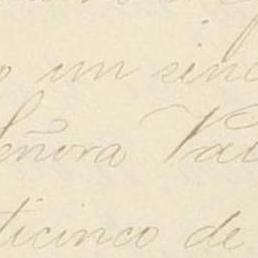 o un sinc
eñora Val
ticinco de